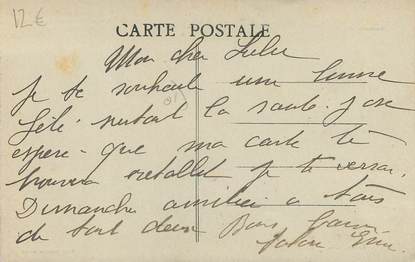 12€
CARTE POSTALE
Mon cher Lulu
Je te souhaite une bonne
fête surtout la santé. J'ose
espére que ma carte te
trouvera je te verrai
Dimanche amitiés a tous
de tout cœur Bons